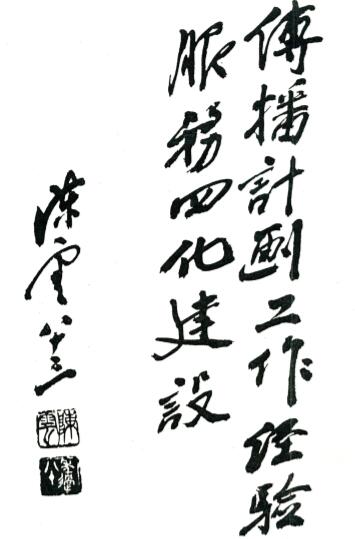 傳播計劃工作经驗
服務四化建設
陳雲八十三